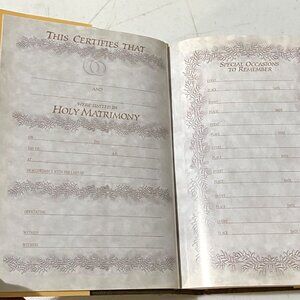 THIS CERTIFIES THAT
AND
WERE UNITED IN
HOLY MATRIMONY
ON
DAY OF A.D.
AT
IN ACCORDANCE WITH THE LAWS OF
OFFICIATING
WITNESS
WITNESS
SPECIAL OCCASIONS
TO REMEMBER
EVENT
PLACE DATE
EVENT
PLACE DATE
EVENT
PLACE DATE
EVENT
PLACE DATE
EVENT
PLACE DATE
EVENT
PLACE DATE